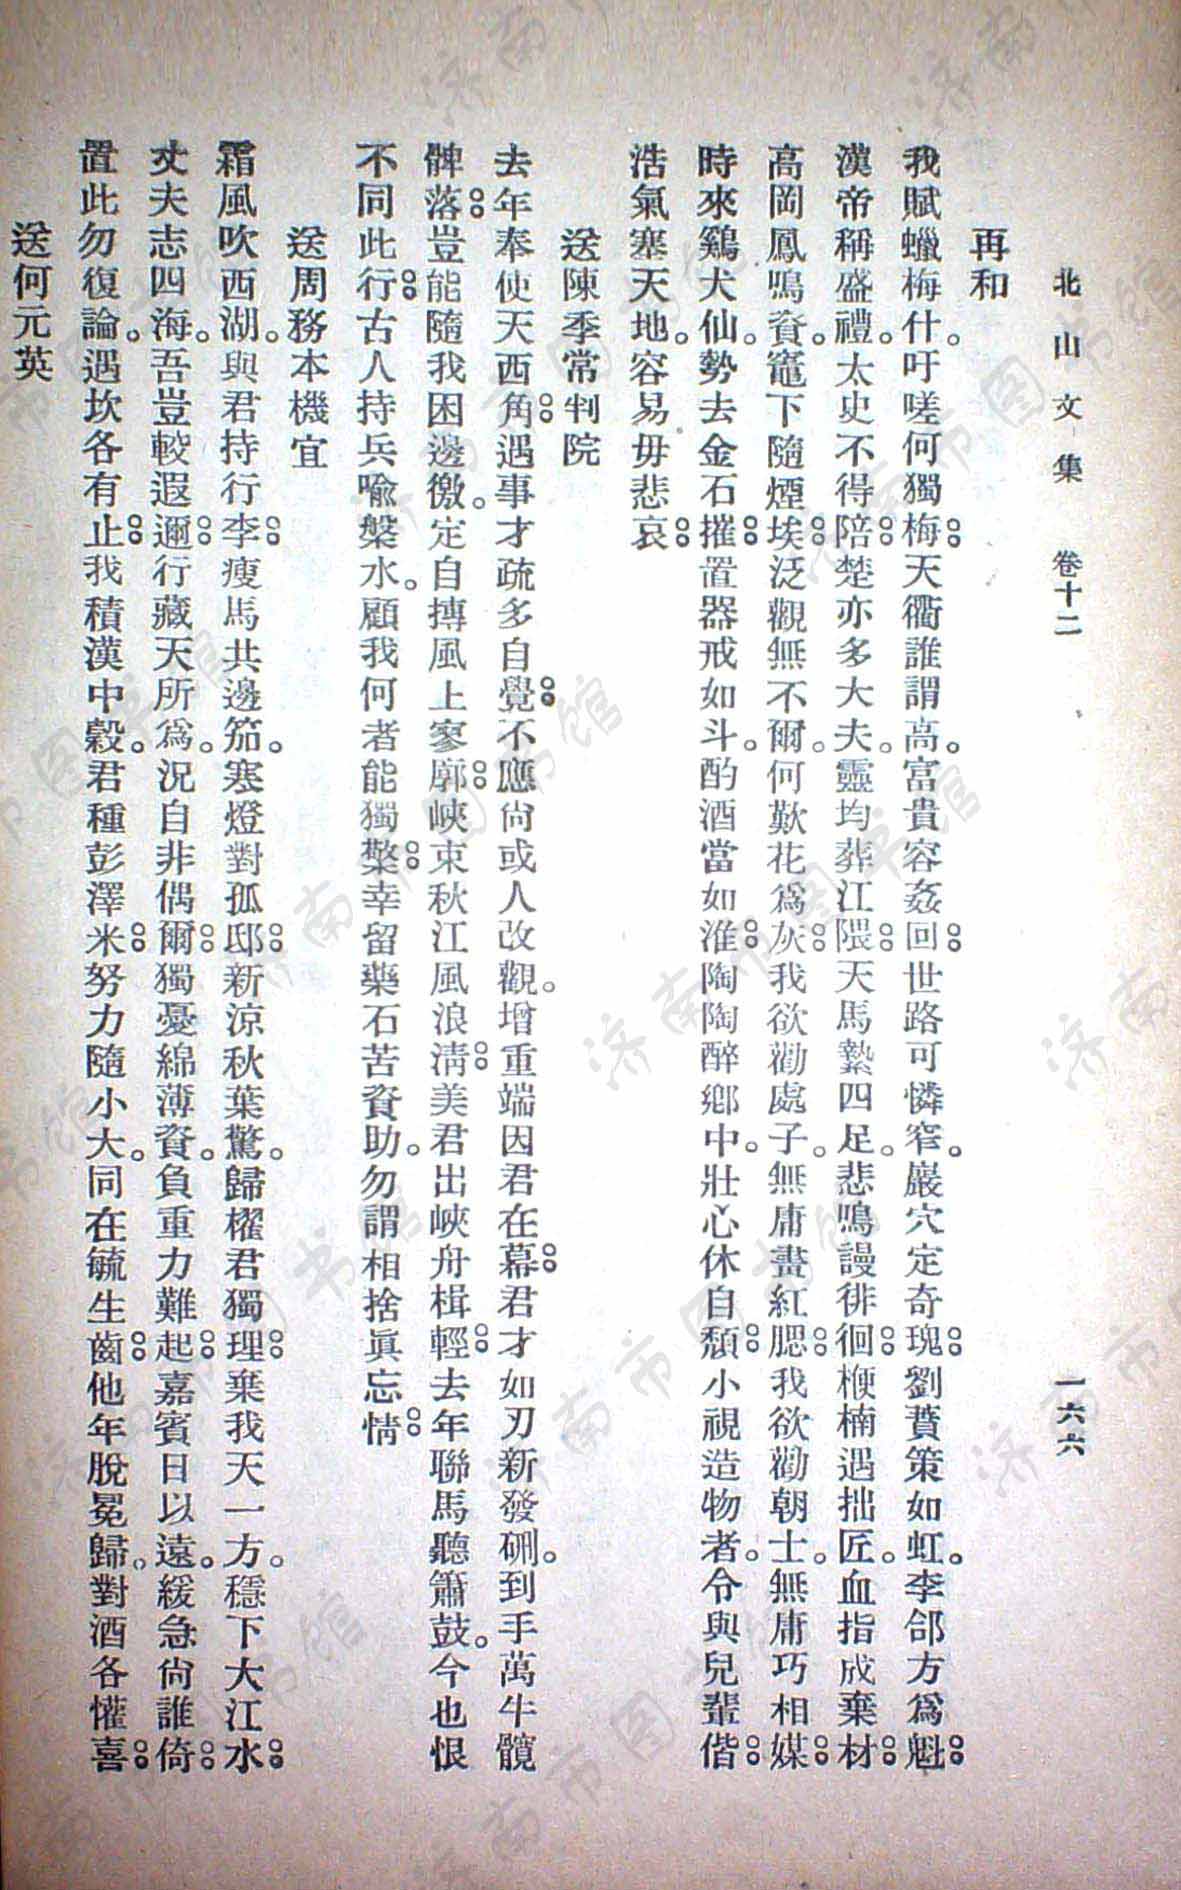 北山文集 卷十二 一六六
再和
我賦蠟梅什。吁嗟何獨梅。天衢誰謂高。富貴容姦回。世路可憐窄。巖穴定奇瑰。劉蕡策如虹。李郃方爲魁。
漢帝稱盛禮。太史不得陪。楚亦多大夫。靈均葬江隈。天馬縶四足。悲鳴謾徘徊。楩楠遇拙匠。血指成棄材。
高岡鳳鳴資。竈下隨煙埃。泛觀無不爾。何歎花爲灰。我欲勸處子。無庸畫紅腮。我欲勸朝士。無庸巧相媒。
時來鷄犬仙。勢去金石摧。置器戒如斗。酌酒當如淮。陶陶醉鄉中。壯心休自頹。小視造物者。令與兒輩偕。
浩氣塞天地。容易毋悲哀。
送陳季常判院
去年奉使天西角。遇事才疏多自覺。不應尙或人改觀。增重端因君在幕。君才如刃新發硎。到手萬牛髖
髀落。豈能隨我困邊徼。定自摶風上寥廓。峽束秋江風浪淸。美君出峽舟楫輕。去年聯馬聽簫鼓。今也恨
不同此行。古人持兵喻槃水。顧我何者能獨檠。幸留藥石苦資助。勿謂相捨眞忘情。
送周務本機宜
霜風吹西湖。與君持行李。瘦馬共邊笳。寒燈對孤邸。新涼秋葉驚。歸櫂君獨理。棄我天一方。穩下大江水。
丈夫志四海。吾豈較遐邇。行藏天所爲。況自非偶爾。獨憂綿薄資。負重力難起。嘉賓日以遠。緩急尙誰倚。
置此勿復論。遇坎各有止。我積漢中穀。君種彭澤米。努力隨小大。同在毓生齒。他年脫冕歸。對酒各懽喜。
送何元英